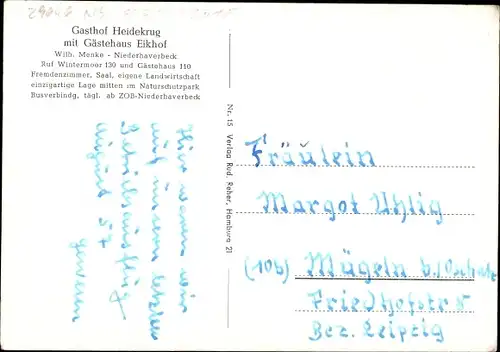 Gasthof Heidekrug
mit Gästehaus Eikhof
Wilh. Menke - Niederhaverbeck
Ruf Wintermoor 130 und Gästehaus 110
Fremdenzimmer, Saal, eigene Landwirtschaft
einzigartige Lage mitten im Naturschutzpark
Busverbindg. tägl. ab ZOB-Niederhaverbeck
Hier waren wir
auf unserm letzten
Betriebsausflug
August 57
gewesen
Nr. 15 Verlag Rud. Reher, Hamburg 21
Fräulein
Margot Uhlig
(10b) Mügeln b/Oschatz
Friedhofstr 5
Bez. Leipzig